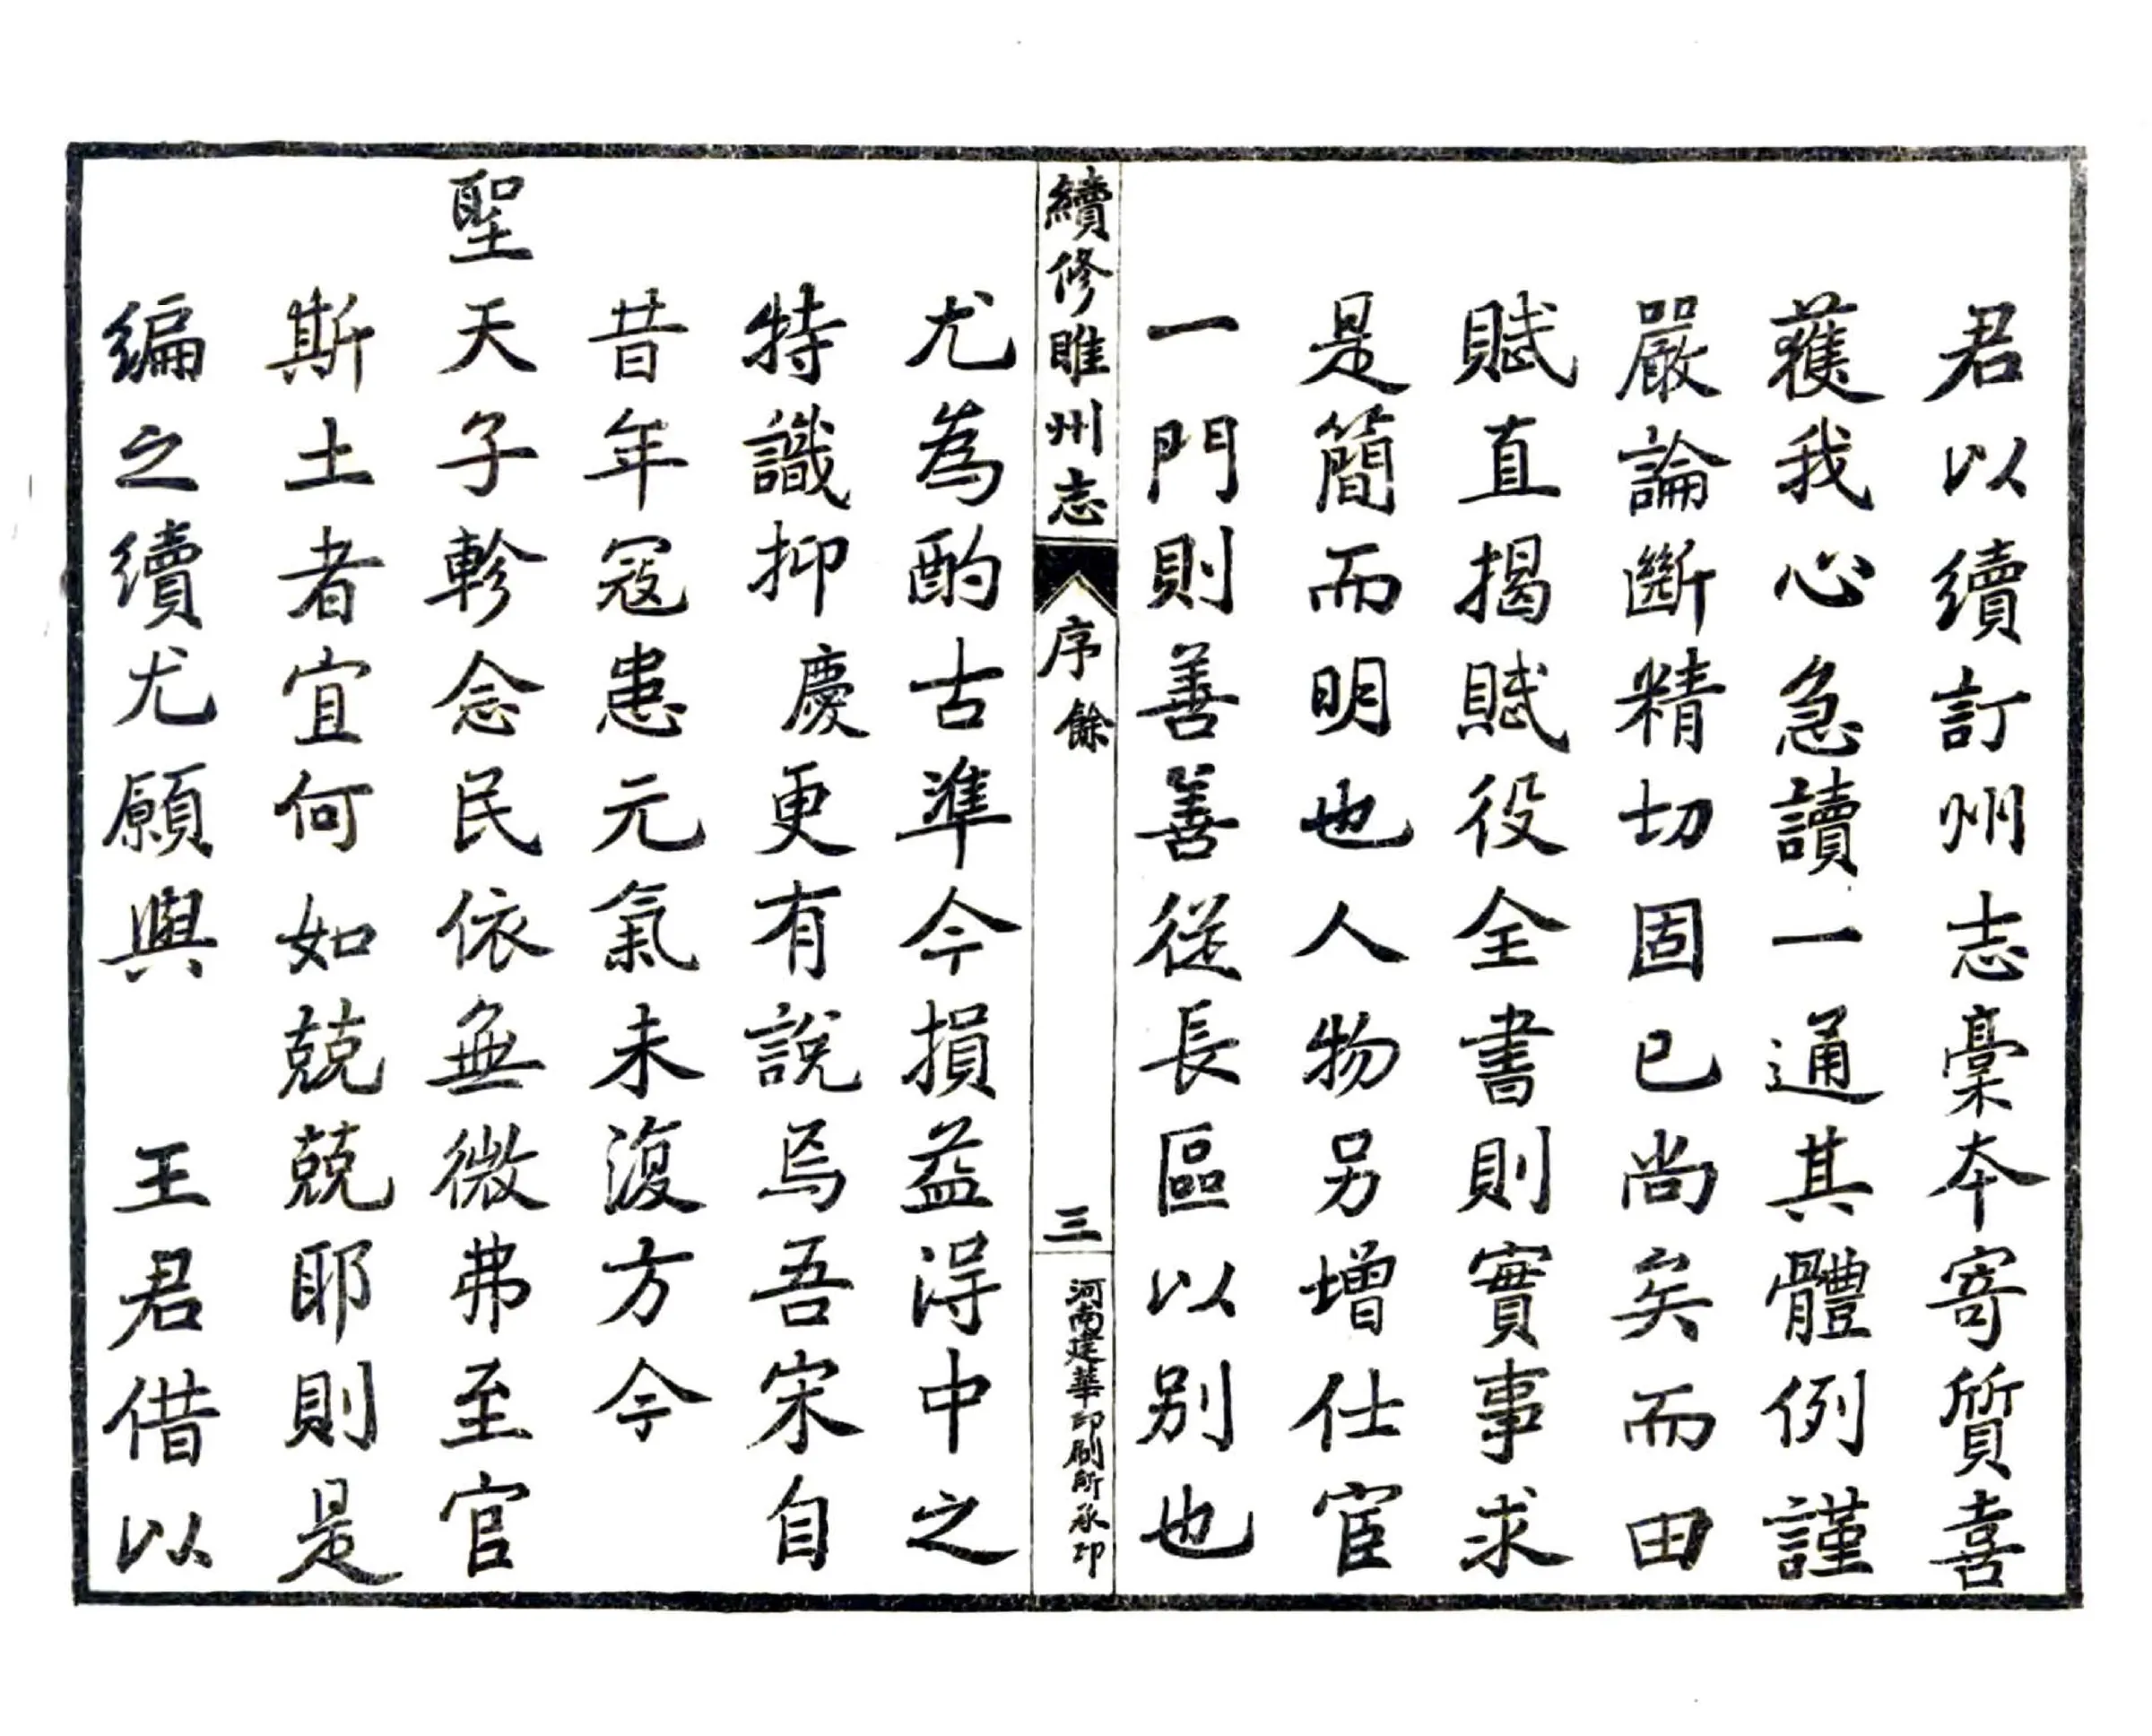 君以續訂州志稾本寄質喜
獲我心急讀一通其體例謹
嚴論斷精切固已尚矣而田
賦直揭賦役全書則實事求
是簡而明也人物另增仕宦
一門則善善從長區以别也
續修睢州志
序餘
三
河南建華印刷所承印
尤為酌古準今損益得中之
特識抑慶更有說焉吾宋自
昔年寇患元氣未復方今
聖天子軫念民依無微弗至官
斯土者宜何如兢兢耶則是
編之續尤願與 王君借以